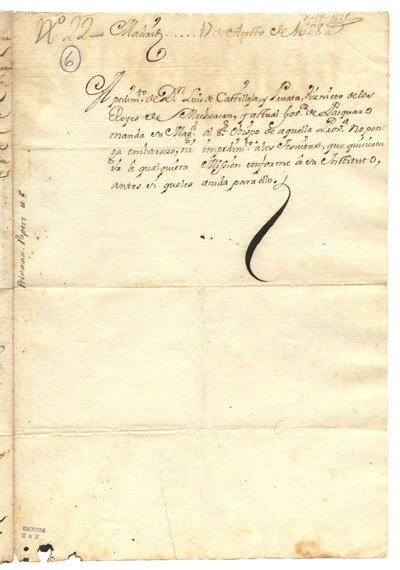 Nº 22 Madrid 17 de Agosto de 1628
6
A pedimto de Dn Luis de Castilleja, y Puuata, viznieto de los
Reyes de Mechoacan, y actual Gov.r de Pasquaro
manda su Magd al Sr Obispo de aquella Dioss no pon
ga embarazo, ni impedimto a los Jesuitas, que quisieren
ir à qualquiera Mission conforme à su Instituto,
antes si que les ayuda para ello.
GARCIA